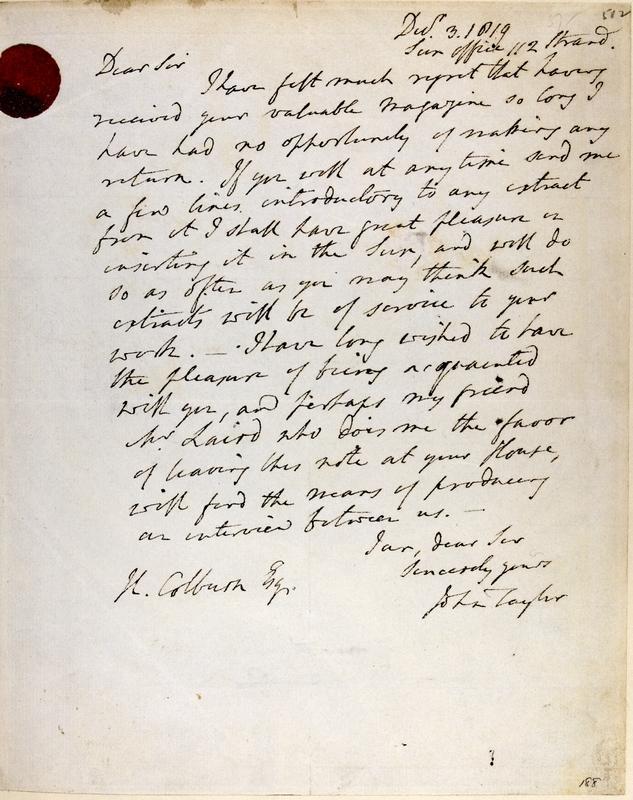 512
Decr. 3. 1819
Sun office 112 Strand.
Dear Sir
I have felt much regret that having
received your valuable Magazine so long I
have had no opportunity of making any
return. If you will at any time send me
a few lines introductory to any extract
from it I shall have great pleasure in
inserting it in the Sun, and will do
so as often as you may think such
extracts will be of service to your
work. — I have long wished to have
the pleasure of being acquainted
with you, and perhaps my friend
Mr Laird who does me the favor
of leaving this note at your House,
will find the means of producing
an interview between us. —
I am, dear Sir
Sincerely yours
John Taylor
H. Colburn Esqr.
188